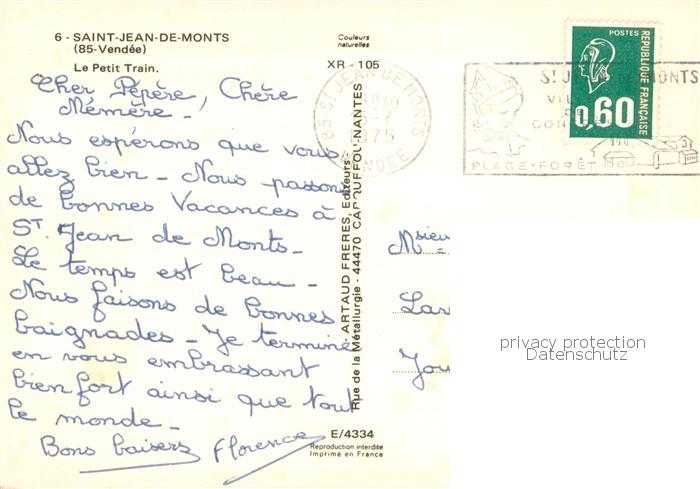 6 - SAINT-JEAN-DE-MONTS
(85-Vendée)
Le Petit Train.
Couleurs
naturelles
XR - 105
Cher Pépère, Chère
Mémère -
Nous espérons que vous
allez bien - Nous passons
de bonnes Vacances à
ST Jean de Monts -
Le temps est beau -
Nous faisons de bonnes
baignades - Je termine
en vous embrassant
bien fort ainsi que tout
le monde -
Bons baisers Florence
ARTAUD FRERES, Editeurs
Rue de la Métallurgie - 44470 CARQUEFOU-NANTES
E/4334
Reproduction interdite
Imprimé en France
85 ST JEAN DE MONTS
1975
VENDEE
PLAGE-FORÊT
POSTES
REPUBLIQUE FRANÇAISE
0,60
Msieu
privacy protection
Datenschutz